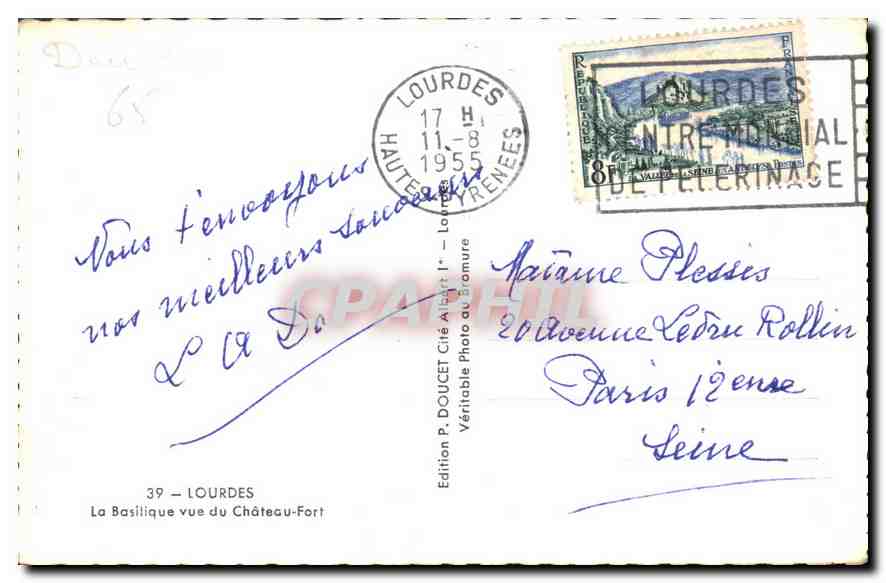 65
LOURDES
17 H
11-8
1955
HAUTES PYRENEES
REPUBLIQUE FRANÇAISE
8F
VALLEE DE LA SEINE AUX ANDELYS
LOURDES
CENTRE MONDIAL
DE PELERINAGE
Nous t'envoyons
nos meilleurs souvenirs
L A Do
CPAPHIL
Madame Plessis
20 Avenue Ledru Rollin
Paris 12 eme
Seine
Edition P. DOUCET Cité Albert Iᵉʳ — Lourdes
Véritable Photo au Bromure
39 — LOURDES
La Basilique vue du Château-Fort